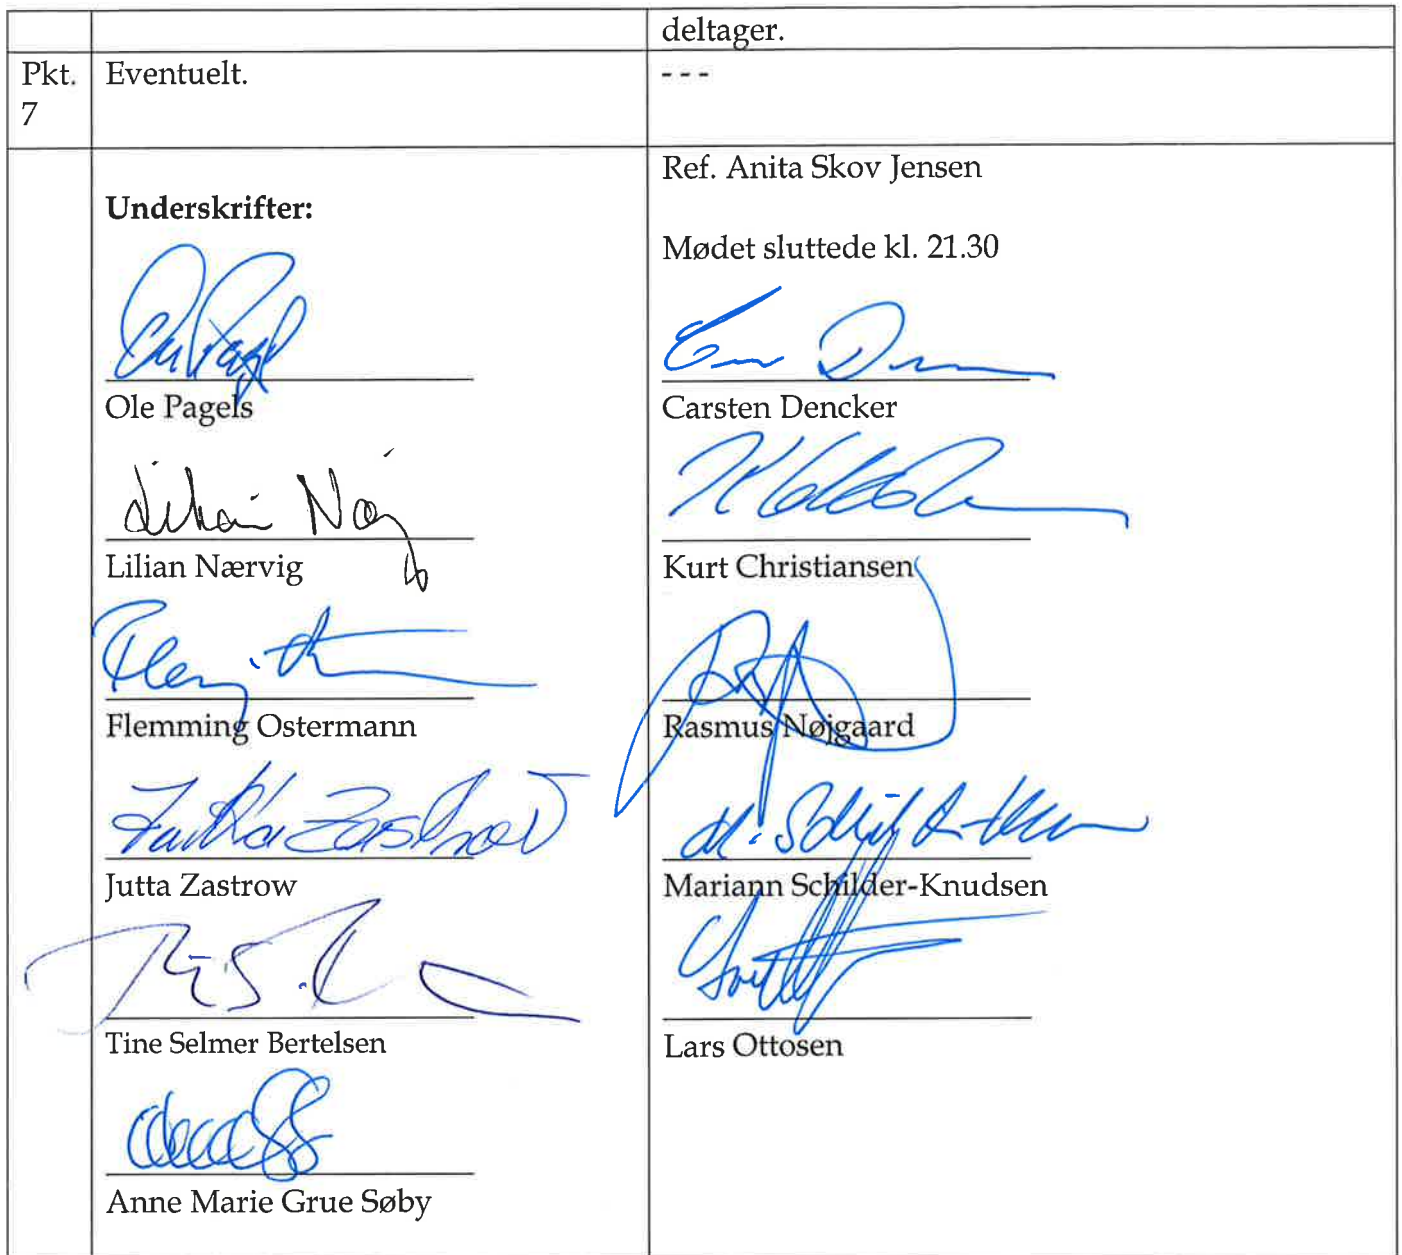 deltager.
Pkt. 7
Eventuelt.
- - -
Underskrifter:
Ole Pagels
Lilian Nærvig
Flemming Ostermann
Jutta Zastrow
Jutta Zastrow
Tine Selmer Bertelsen
Anne Marie Grue Søby
Ref. Anita Skov Jensen
Mødet sluttede kl. 21.30
Carsten Dencker
Kurt Christiansen
Rasmus Nøjgaard
Mariann Schilder-Knudsen
Lars Ottosen